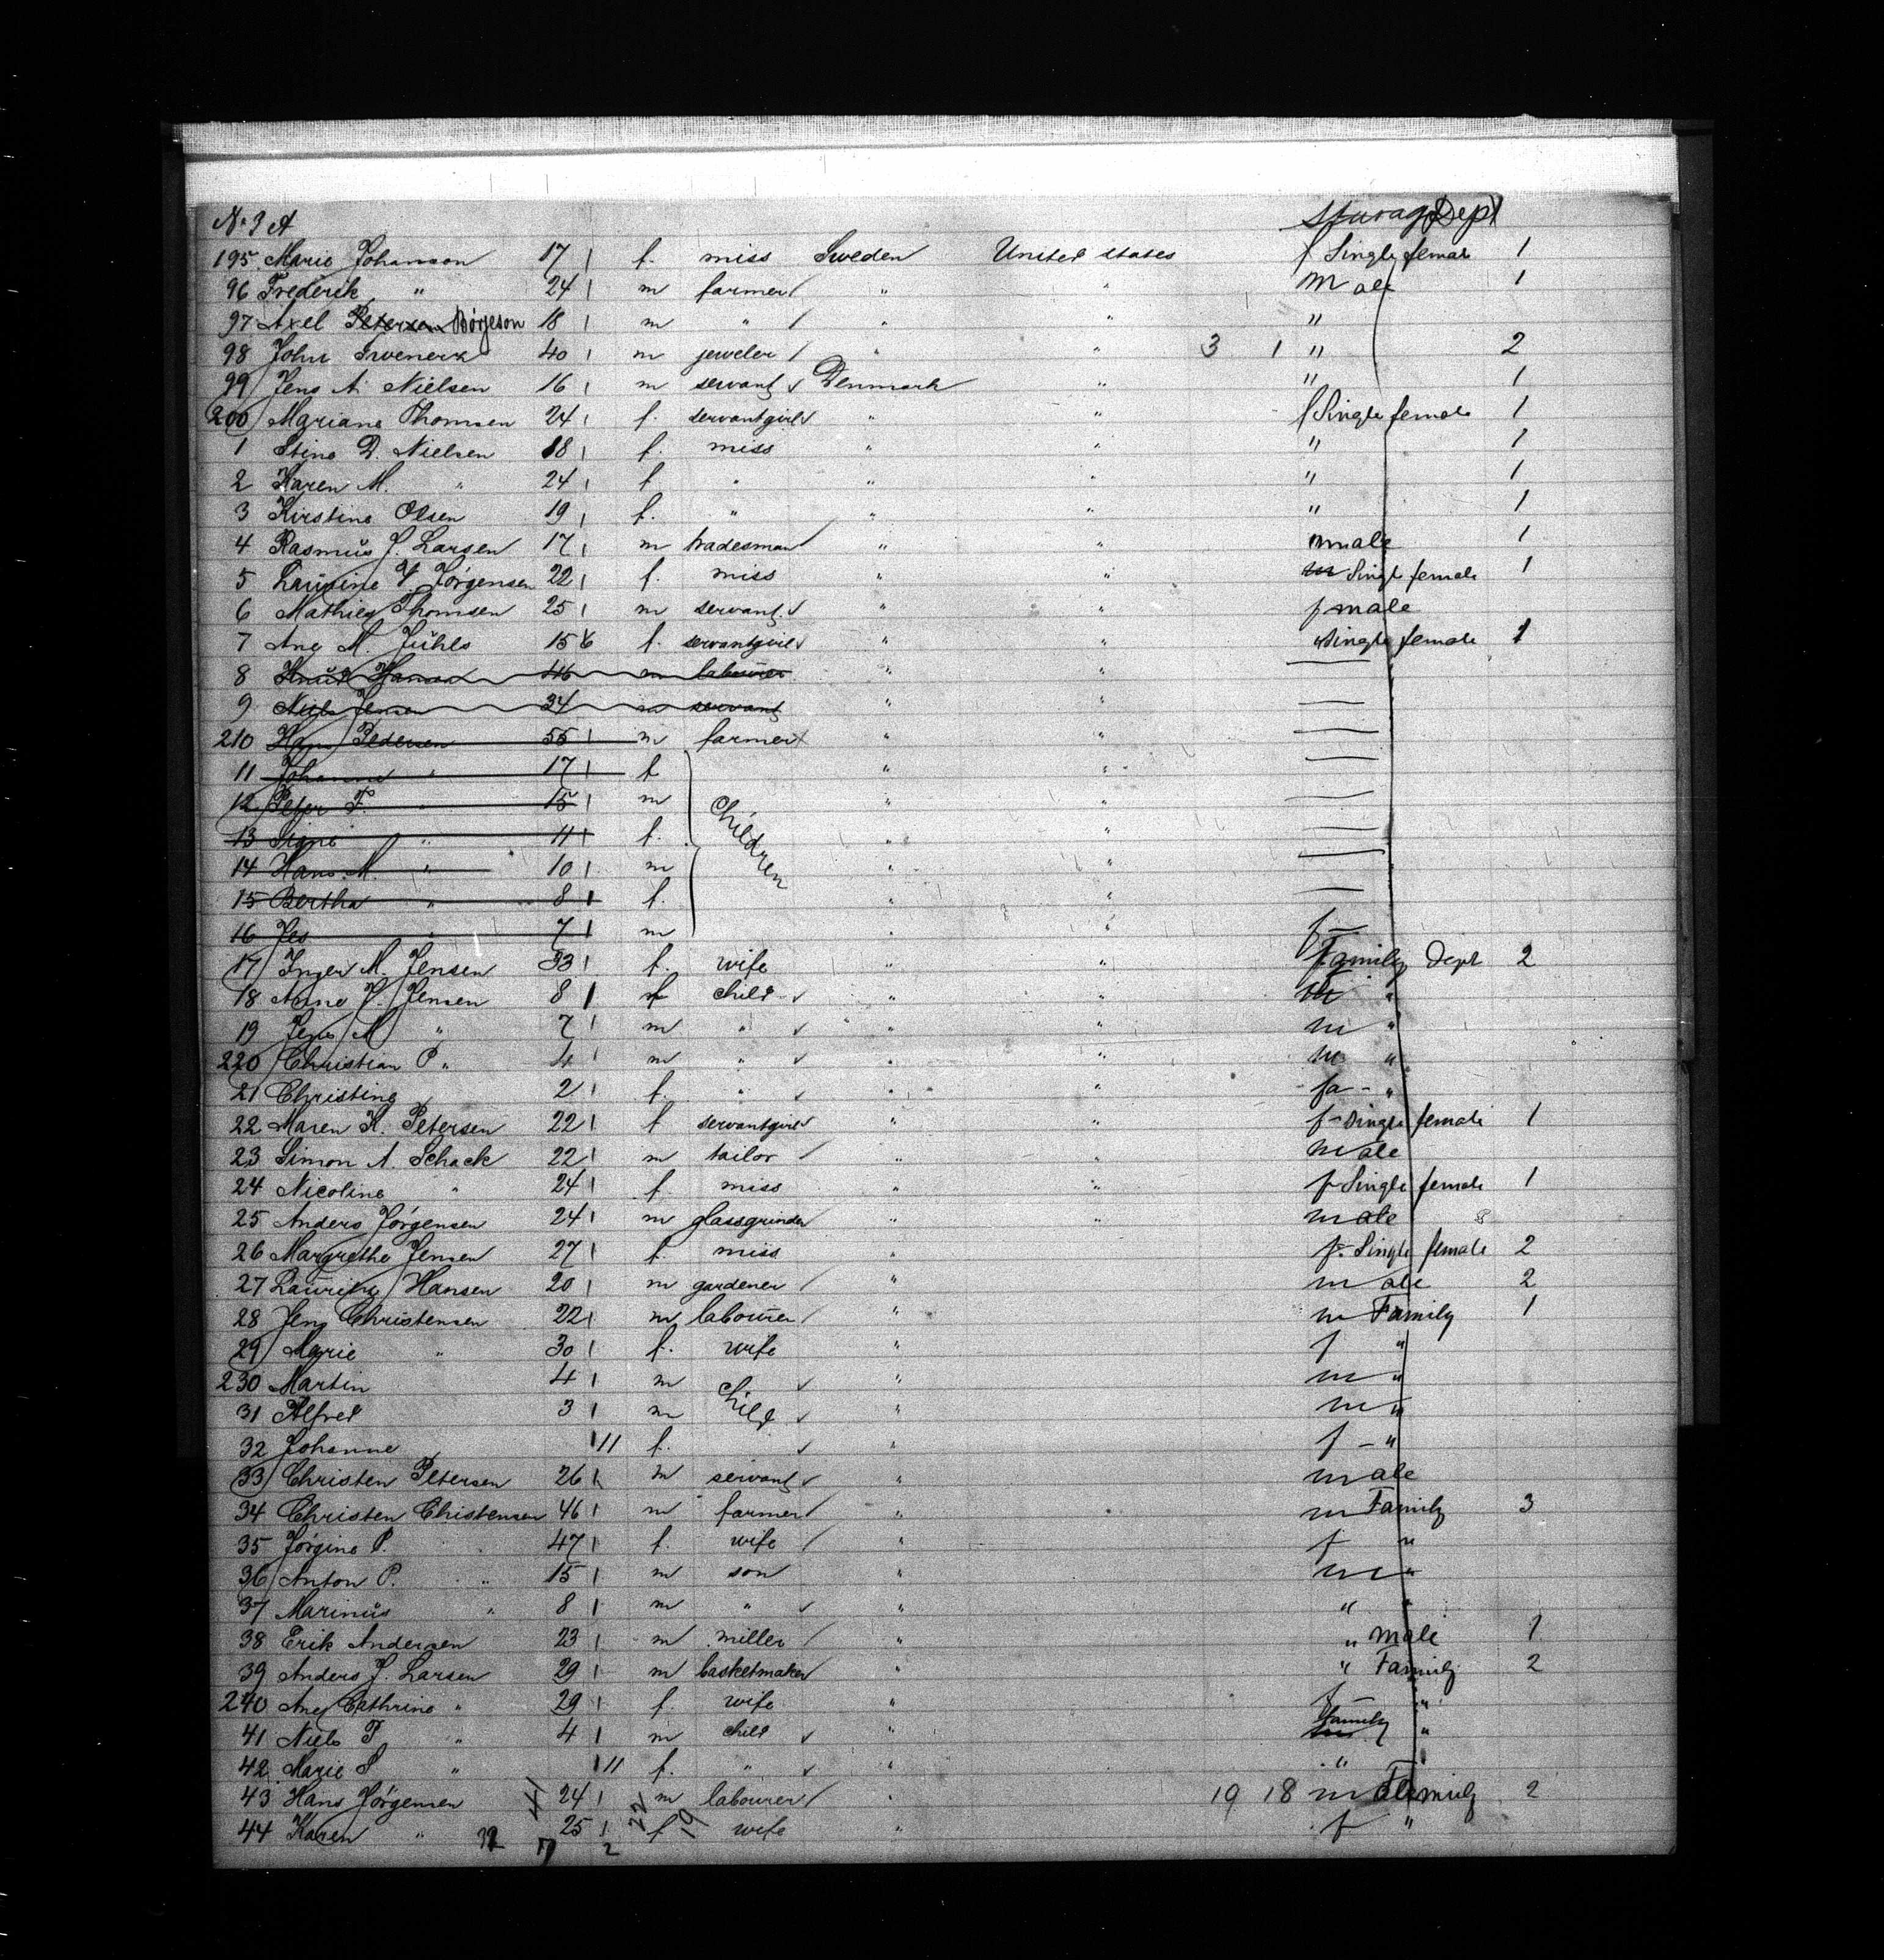 No 3 A Dept
195 Marie Johanson 17 f. miss Sweden United states f Single female 1
96 Frederik " 24 m farmer " " Male 1
97 Axel Petersen Börjeson 18 m " " " "
98 John 40 m jeweler " " 3 1 " 2
99 Jens A. Nielsen 16 m servant Denmark " " 1
200 Mariane Thomsen 24 f. servantgirl " " f Single female 1
1 Stine D. Nielsen 18 f. miss " " " 1
2 Karen M. " 24 f " " " " 1
3 Kirstine Olsen 19 f. " " " " 1
4 Rasmus J. Larsen 17 m tradesman " " male 1
5 Laurine V Jörgensen 22 f. miss " " m Single female 1
6 Mathies Thomsen 25 m servant " " f male
7 Ane M. Juhls 15 f. servantgirl " " Single female 1
8 Knud Hansen 46 m labourer " " —
9 Niels Jensen 34 m servant " " —
210 Hans Pedersen 55 m farmer " " —
11 Johanne " 17 f " " —
12 Peter F. " 15 m " " —
13 Signe " 11 f. Children " " —
14 Hans M. " 10 m " " —
15 Bertha " 8 f. " " —
16 Jes " 7 m " " f —
17 Inger M. Jensen 33 f. wife " " Family Dept 2
18 Anne K. Jensen 8 f child " " m "
19 Jens M " 7 m " " " m "
220 Christian P " 4 m " " " m "
21 Christine 2 f. " " " fa - "
22 Maren K. Petersen 22 f servantgirl " " f - Single female 1
23 Simon A. Schack 22 m tailor " " male
24 Nicoline " 24 f. miss " " f Single female 1
25 Anders Jörgensen 24 m glassgrinder " " male 8
26 Margrethe Jensen 27 f. miss " f. Single female 2
27 Laurits Hansen 20 m gardener " male 2
28 Jens Christensen 22 m labourer " m Family 1
29 Marie " 30 f. wife " f "
230 Martin 4 m " m "
31 Alfred 3 m Child " m "
32 Johanne 11 f. " f - "
33 Christen Petersen 26 m servant " male
34 Christen Christensen 46 m farmer " m Family 3
35 Jörgine P. " 47 f. wife " f "
36 Anton P. " 15 m son " m "
37 Marinus " 8 m " " " "
38 Erik Andersen 23 m miller " " male 1
39 Anders J. Larsen 29 m basketmaker " " Family 2
240 Ane Cathrine " 29 f. wife " f - "
41 Niels P " 4 m child " m family "
42 Marie S " 11 f. " " "
43 Hans Jörgensen 41 24 22 m 19 labourer " 19 18 m ale Family 2
44 Karen " 25 f wife " f "
2